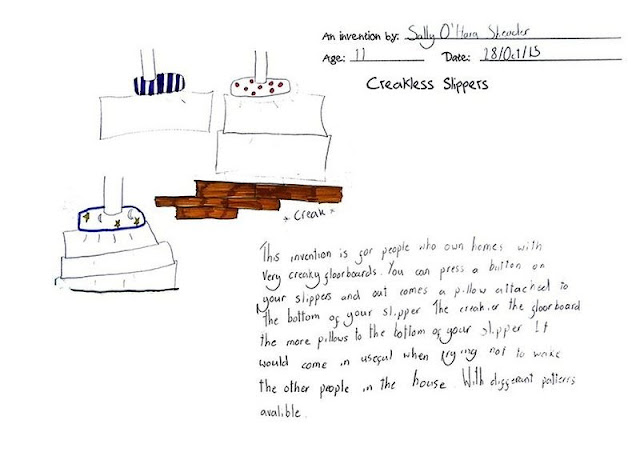 An invention by: Sally O'Hara
Age: 11 Date: 28/Oct/15
Creakless Slippers
* Creak *
This invention is for people who own homes with
very creaky floorboards. You can press a button on
your slippers and out comes a pillow attached to
the bottom of your slipper. The creakier the floorboard
the more pillows to the bottom of your slipper. It
would come in useful when trying not to wake
the other people in the house. With different patterns
avalible.